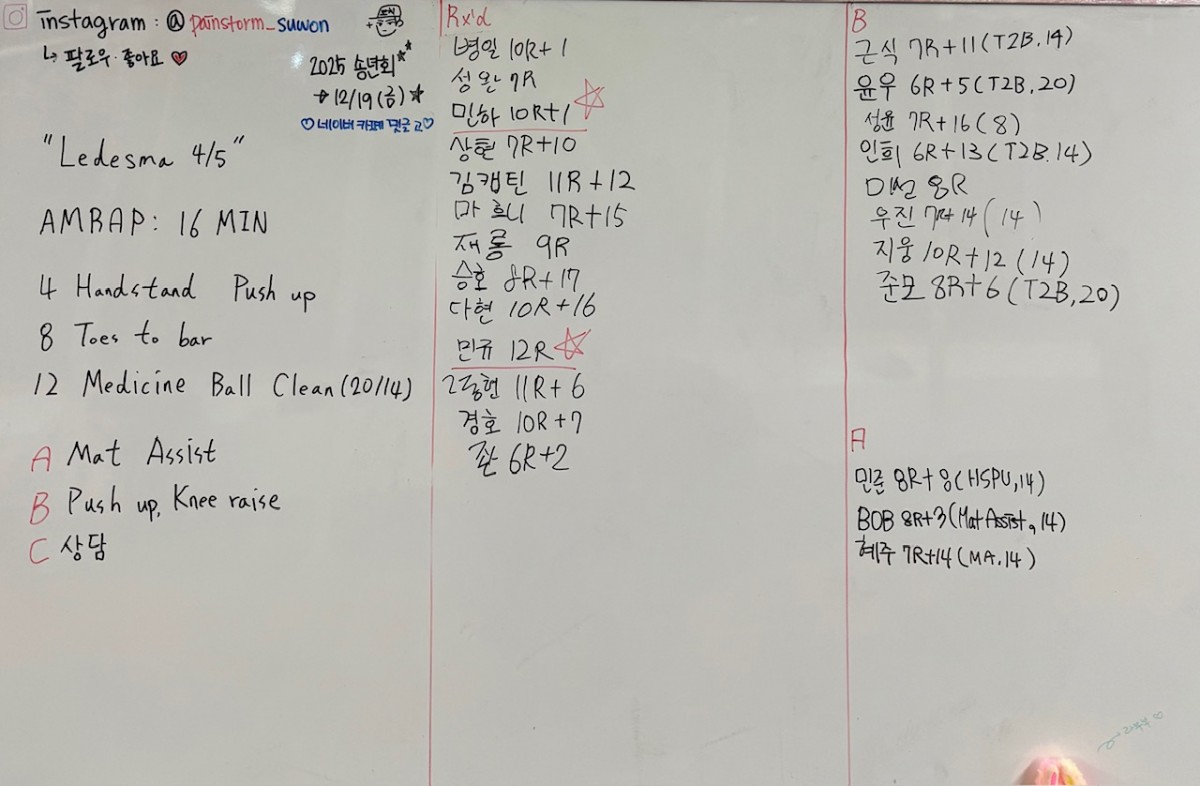 instagram : @painstorm_suwon
↳ 팔로우·좋아요 ♥
2025 송년회
→ 12/19(금) ★
♡네이버 카페 댓글 고♡
"Ledesma 4/5"
AMRAP: 16 MIN
4 Handstand Push up
8 Toes to bar
12 Medicine Ball Clean(20/14)
A Mat Assist
B Push up, Knee raise
C 상담
Rx'd
병일 10R+1
성완 7R
민하 10R+1 ☆
상현 7R+10
김캡틴 11R+12
마르니 7R+15
재롱 9R
승호 8R+17
다현 10R+16
민규 12R ☆
11R+6
경호 10R+7
6R+2
B
근식 7R+11(T2B.14)
윤우 6R+5(T2B,20)
성윤 7R+16(8)
인희 6R+13(T2B.14)
미선 8R
우진 7R+14(14)
지웅 10R+12(14)
준모 8R+6(T2B,20)
A
민준 8R+8(HSPU,14)
BOB 8R+3(Mat Assist, 14)
혜주 7R+14(MA.14)